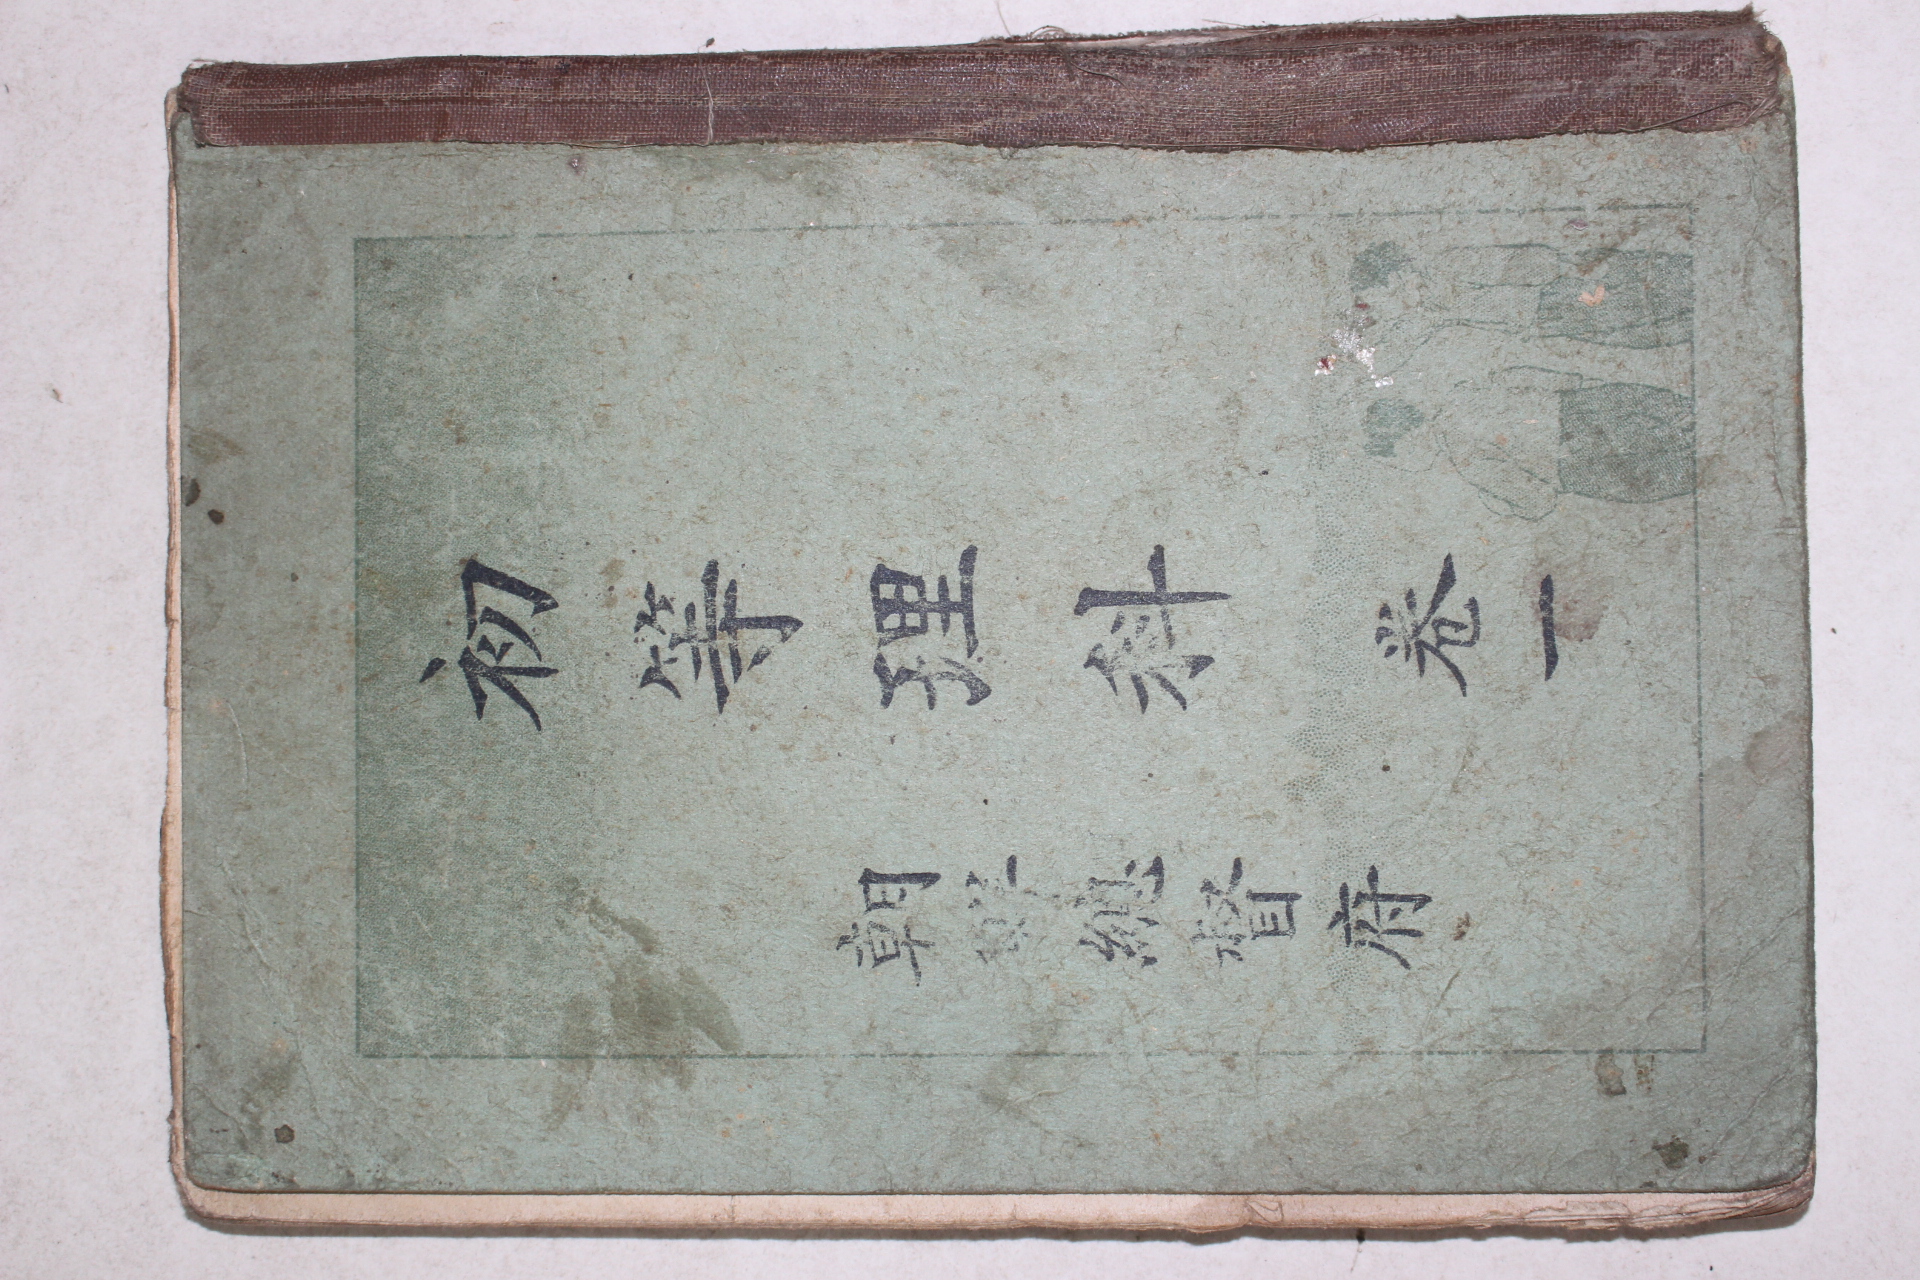 初等理科 卷一
朝鮮總督府